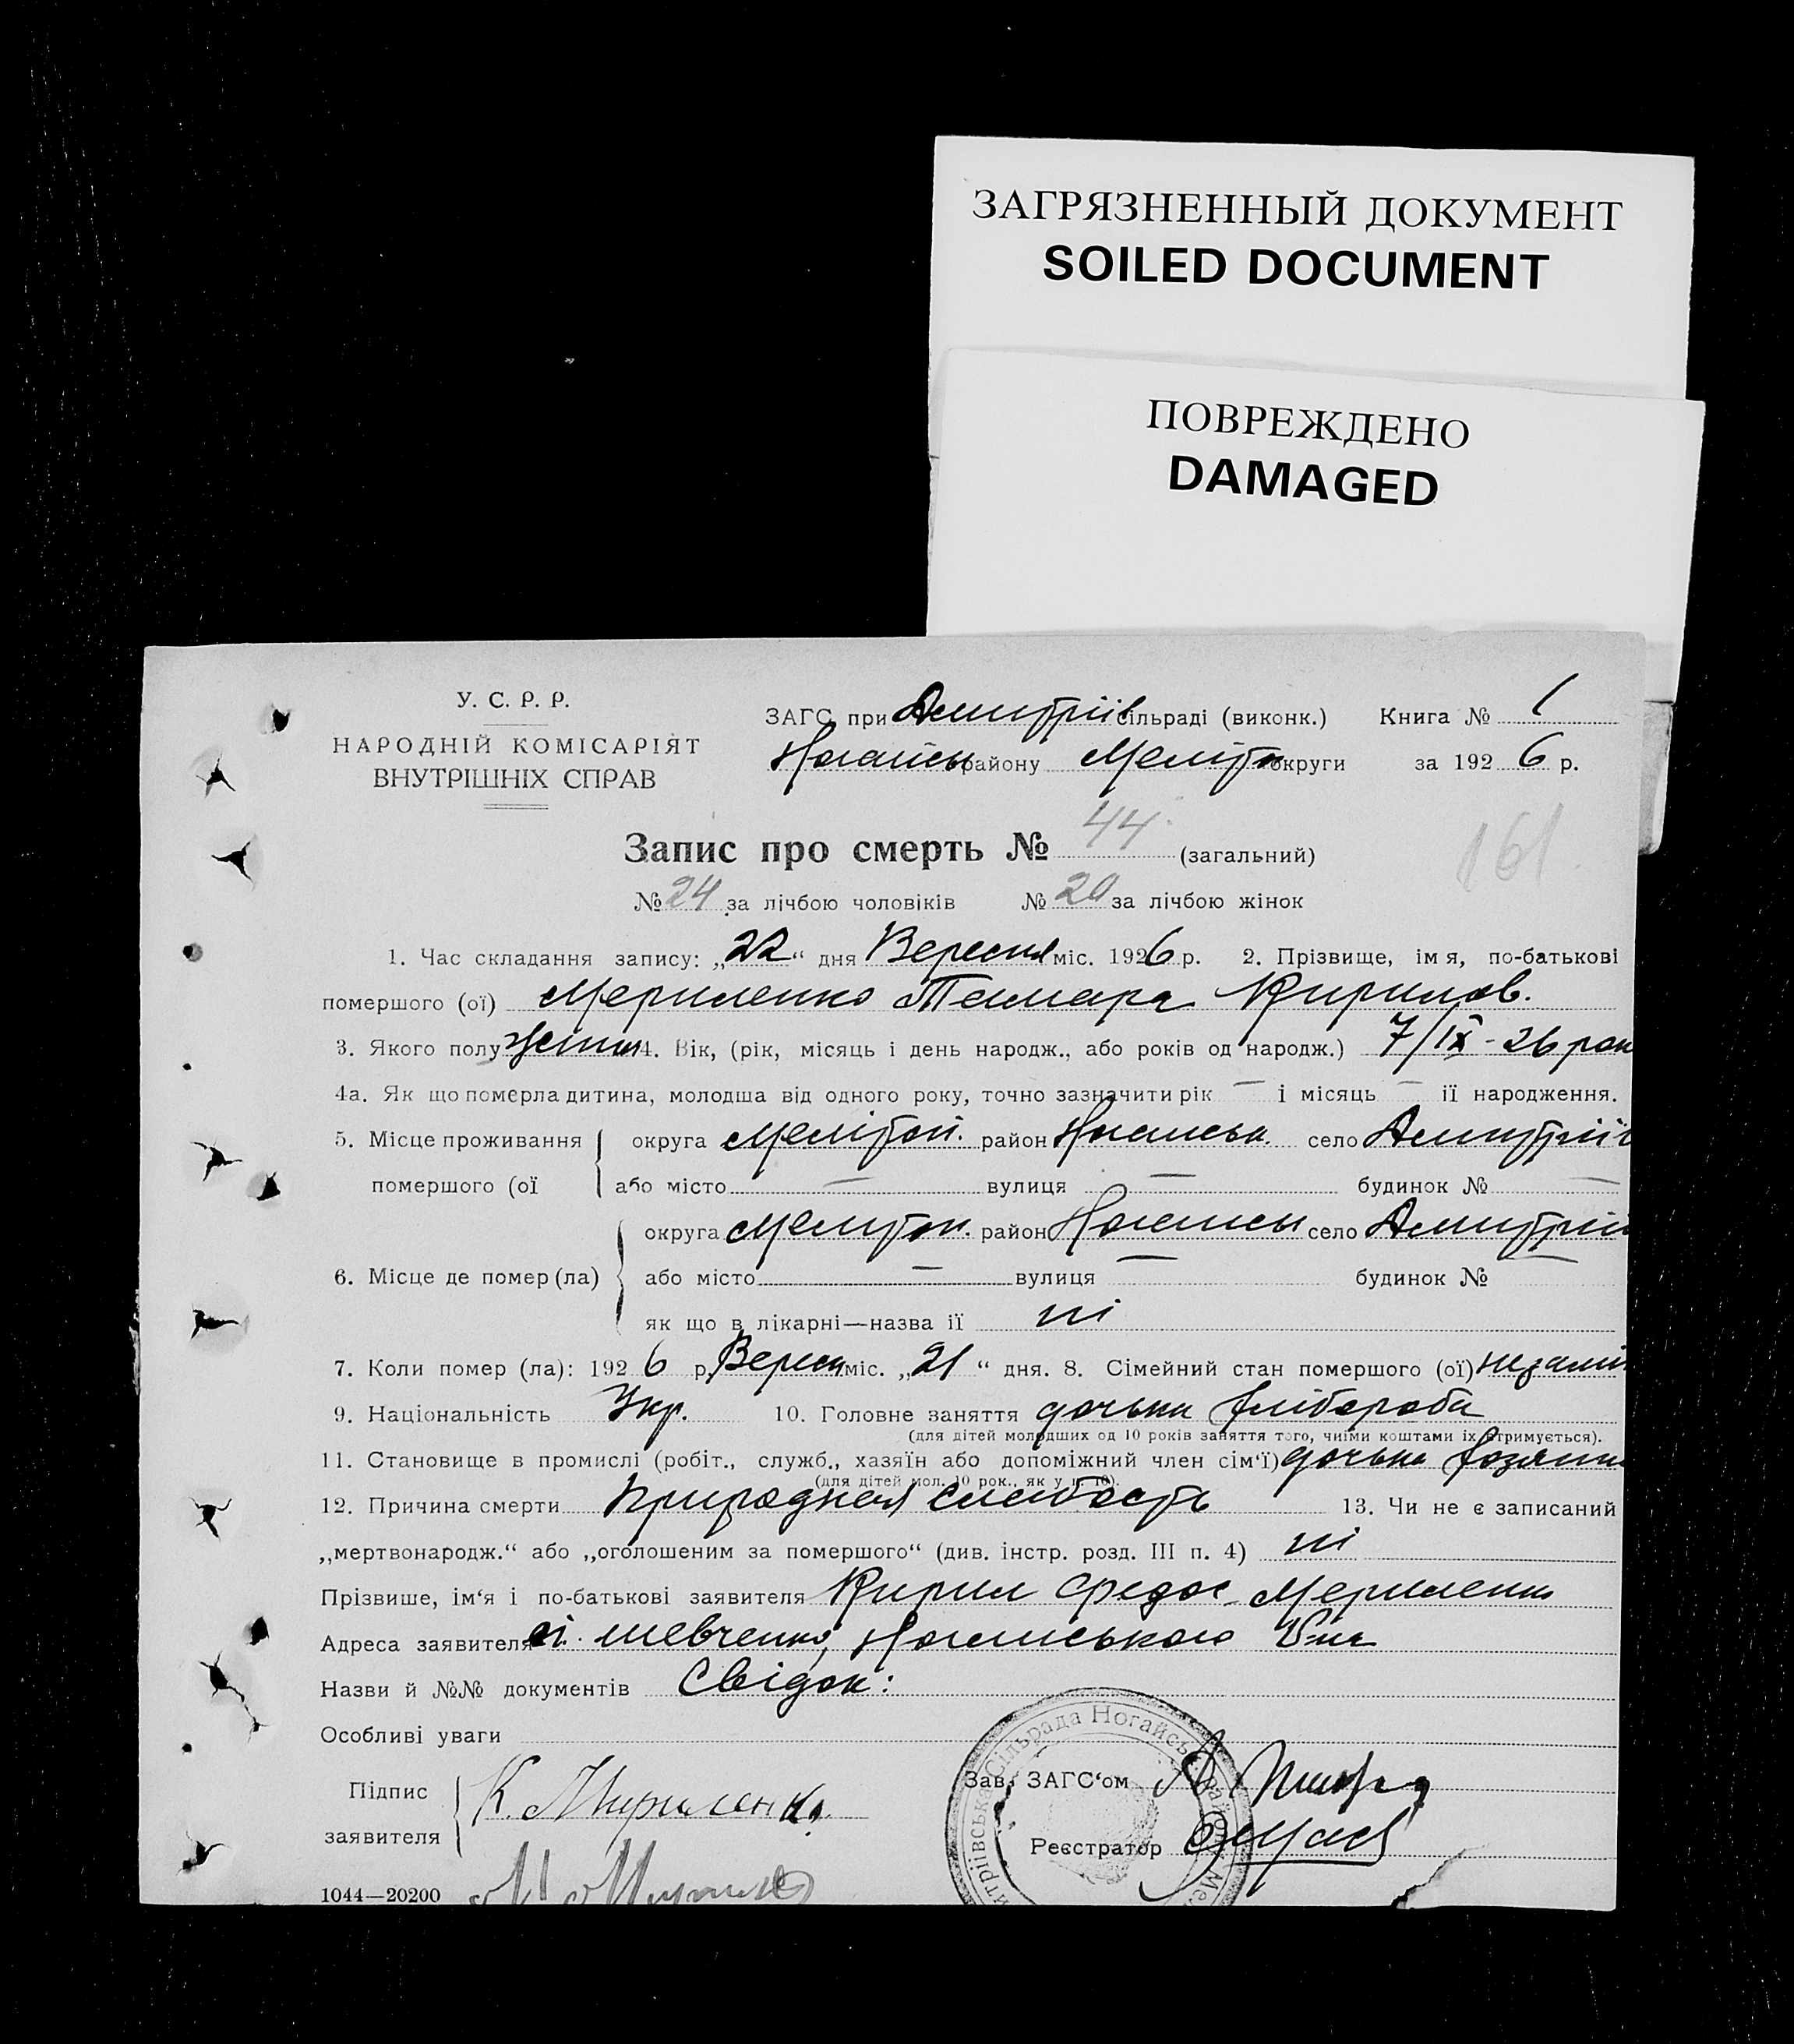 ЗАГРЯЗНЕННЫЙ ДОКУМЕНТ
SOILED DOCUMENT
ПОВРЕЖДЕНО
DAMAGED
У. С. Р. Р.
НАРОДНІЙ КОМІСАРІЯТ
ВНУТРІШНІХ СПРАВ
ЗАГС при Дмитріїв сільраді (виконк.) Книга № 1
Ногайськ району Меліто округи за 1926 р.
Запис про смерть № 44 (загальний)
161
№ 24 за лічбою чоловіків № 20 за лічбою жінок
1. Час складання запису: „22“ дня Вересня міс. 1926 р. 2. Прізвище, ім я, по-батькові
помершого (ої) Мериленко Тамара Кирилов.
3. Якого полу 4. Вік, (рік, місяць і день народж., або років од народж.) 7/IX - 26 рок
4а. Як що померла дитина, молодша від одного року, точно зазначити рік — і місяць — її народження.
5. Місце проживання округа Мелітоп. район Ногайськ. село Дмитрії
помершого (ої або місто — вулиця — будинок № —
округа Мелитоп. район Ногайськ село Дмитрії
6. Місце де помер (ла) або місто — вулиця — будинок № —
як що в лікарні—назва її ні
7. Коли помер (ла): 1926 р. Вересн міс. „21“ дня. 8. Сімейний стан помершого (ої) незамі
9. Національність Укр. 10. Головне заняття дочька хлібороба
(для дітей молодших од 10 років заняття того, чиїми коштами їх отримується).
11. Становище в промислі (робіт., служб., хазяїн або допоміжний член сім‘ї) дочька хозяин
(для дітей мол. 10 рок., як у п. 10).
12. Причина смерти Природная слабость 13. Чи не є записаний
„мертвонародж.“ або „оголошеним за помершого“ (див. інстр. розд. III п. 4) ні
Прізвише, ім‘я і по-батькові заявителя Кирил Федос Мериленко
Адреса заявителя с. Шевченко, Ногайського
Назви й №№ документів Свідок:
Особливі уваги
Підпис
заявителя К. Мириленко
Зав. ЗАГС‘ом
Реєстратор
Сільрада Ногайськ
1044—20200